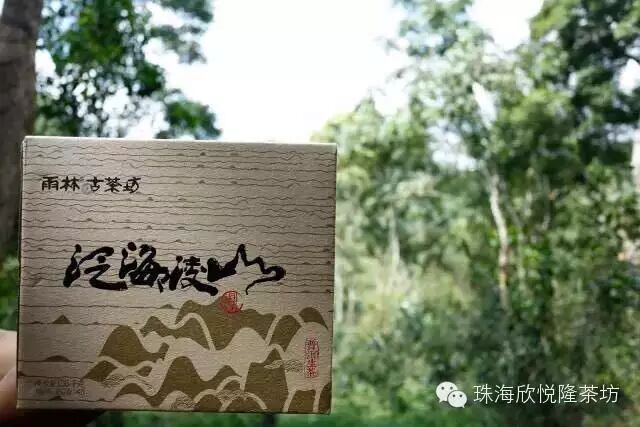 雨林古茶坊
泛海凌山
普洱生茶
珠海欣悦隆茶坊